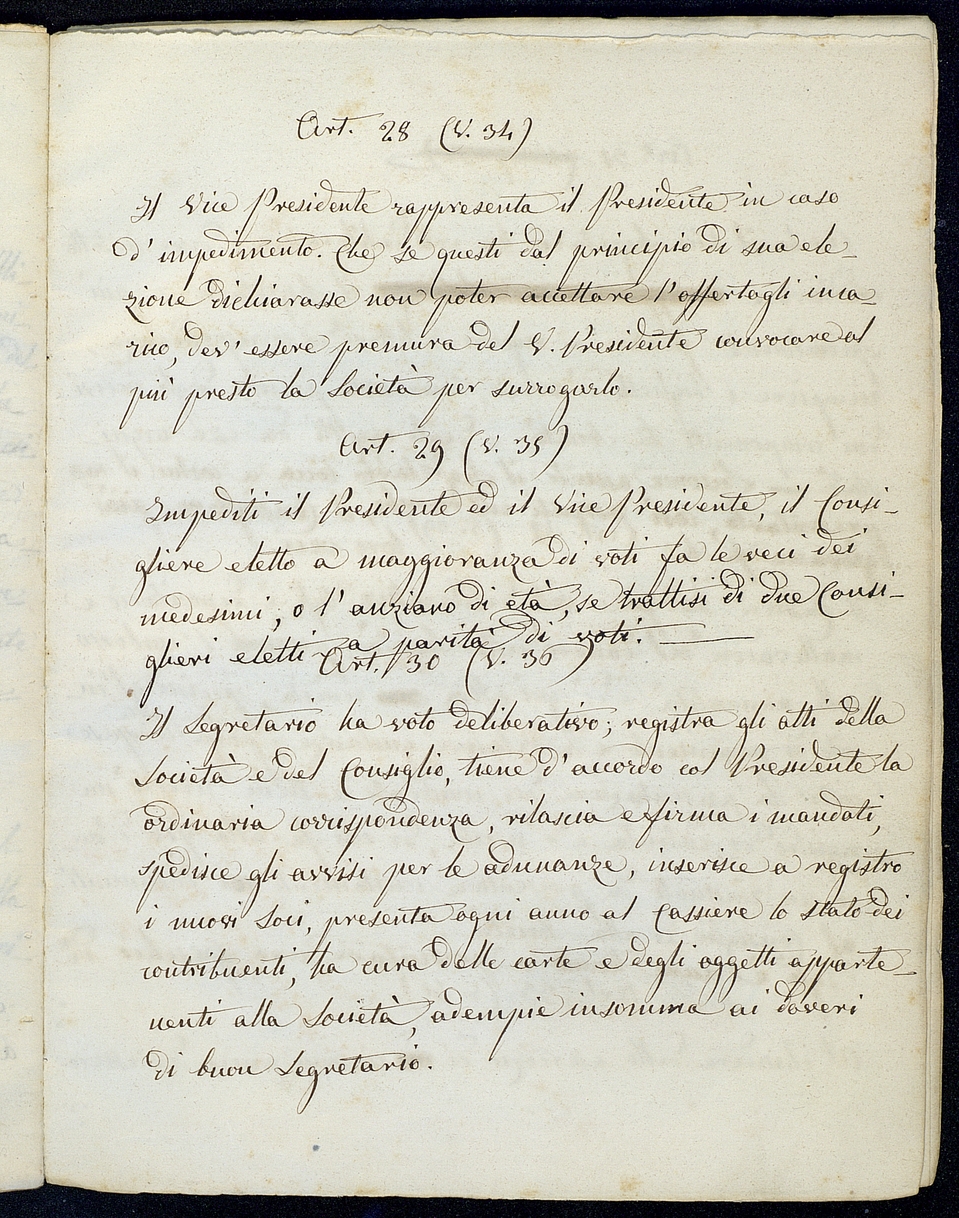 Art. 28 (V. 34)
Il Vice Presidente rappresenta il Presidente in caso
d'impedimento. Che se questi dal principio di sua ele-
zione dichiarasse non poter accettare l'offertagli inca-
rico, dev'essere premura del V. Presidente convocare al
più presto la Società per surrogarlo.
Art. 29 (V. 35)
Impediti il Presidente ed il Vice Presidente, il Consi-
gliere eletto a maggioranza di voti fa le veci dei
medesimi; o l'anziano di età, se trattisi di due Consi-
glieri eletti a parità di voti.
Art. 30 (V. 36)
Il Segretario ha voto deliberativo; registra gli atti della
Società e del Consiglio, tiene d'accordo col Presidente la
ordinaria corrispondenza, rilascia e firma i mandati,
spedisce gli avvisi per le adunanze, inserisce a registro
i nuovi Soci, presenta ogni anno al Cassiere lo stato dei
contribuenti, ha cura delle carte e degli oggetti apparte-
nenti alla Società, adempie insomma ai doveri
di buon Segretario.